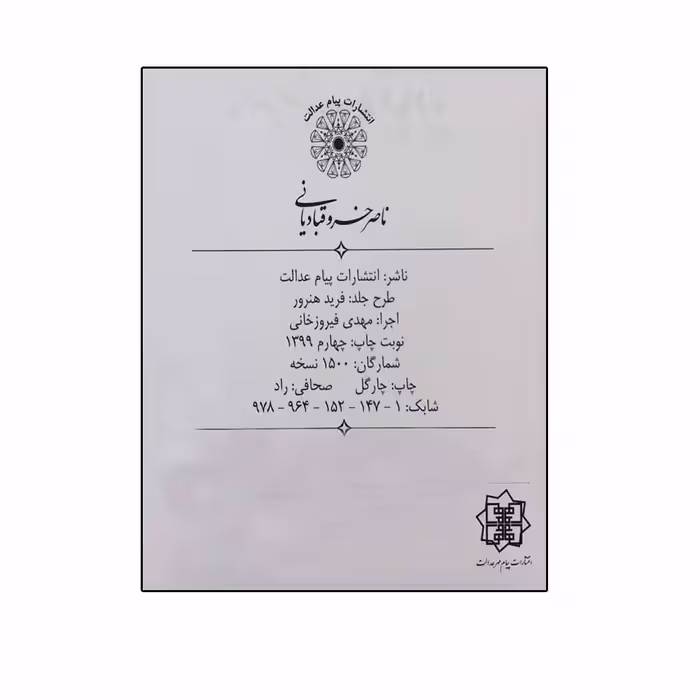 انتشارات پیام عدالت
ناصر خسرو قبادیانی
ناشر: انتشارات پیام عدالت
طرح جلد: فرید هنرور
اجرا: مهدی فیروزخانی
نوبت چاپ: چهارم ۱۳۹۹
شمارگان: ۱۵۰۰ نسخه
چاپ: چارگل صحافی: راد
شابک: ۱ - ۱۴۷ - ۱۵۲ - ۹۶۴ - ۹۷۸
انتشارات پیام مهر عدالت